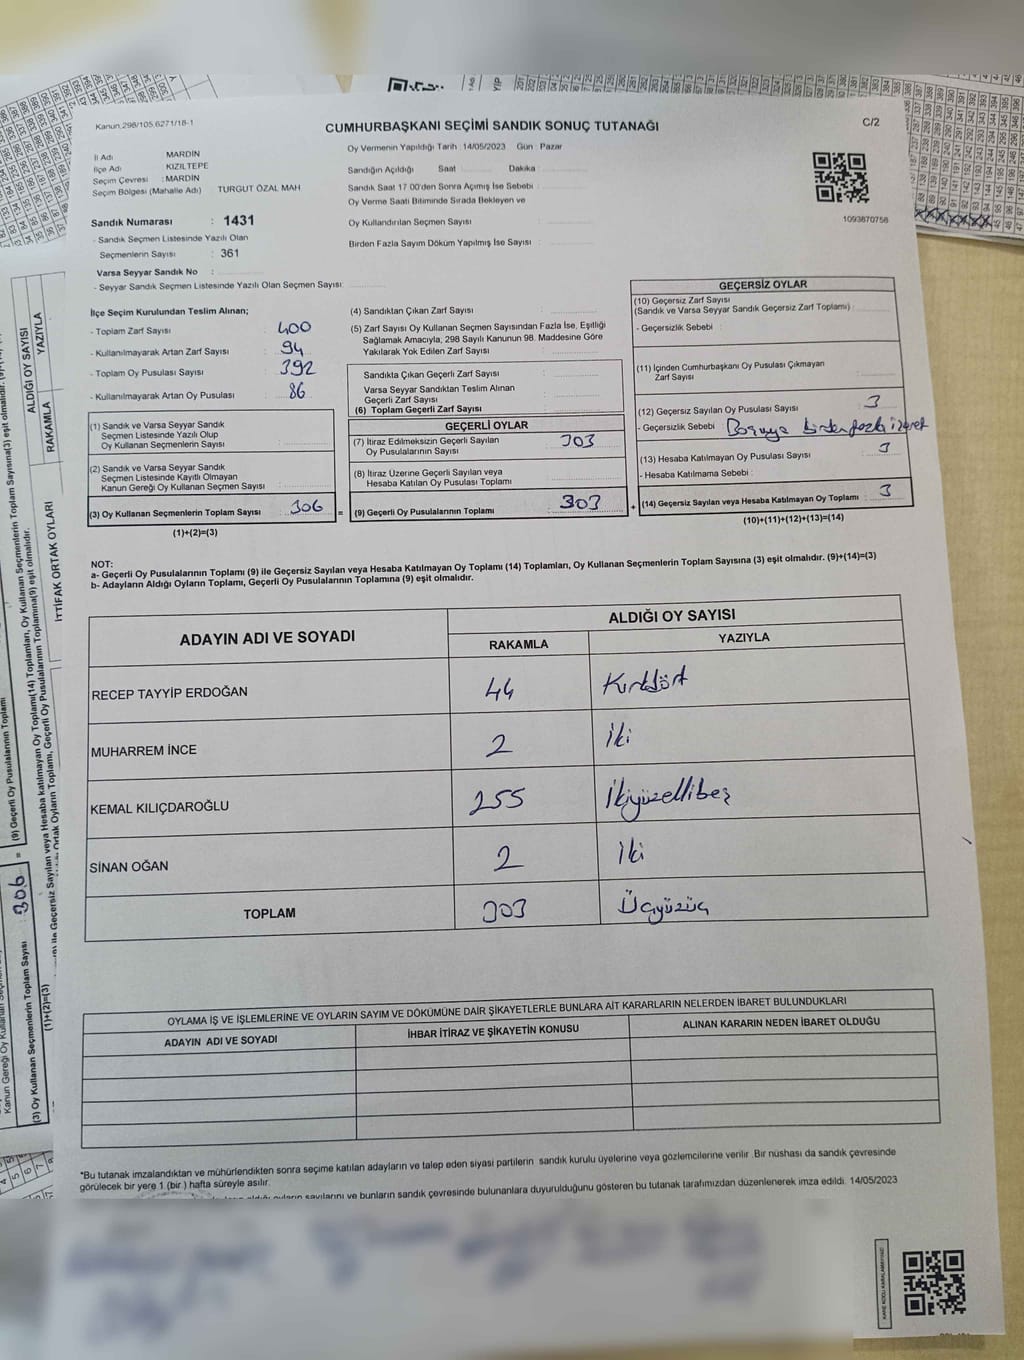 Kanun 298/105,6271/18-1
CUMHURBAŞKANI SEÇİMİ SANDIK SONUÇ TUTANAĞI
C/2
İl Adı MARDİN
İlçe Adı KIZILTEPE
Seçim Çevresi : MARDİN
Seçim Bölgesi (Mahalle Adı) TURGUT ÖZAL MAH
Oy Vermenin Yapıldığı Tarih 14/05/2023 Gün : Pazar
Sandığın Açıldığı Saat Dakika
Sandık Saat 17 00'den Sonra Açımış İse Sebebi :
Oy Verme Saati Bitiminde Sırada Bekleyen ve
Oy Kullandırılan Seçmen Sayısı :
Birden Fazla Sayım Döküm Yapılmış İse Sayısı :
1093870756
Sandık Numarası : 1431
- Sandık Seçmen Listesinde Yazılı Olan
Seçmenlerin Sayısı : 361
Varsa Seyyar Sandık No :
- Seyyar Sandık Seçmen Listesinde Yazılı Olan Seçmen Sayısı:
İlçe Seçim Kurulundan Teslim Alınan;
- Toplam Zarf Sayısı : 400
- Kullanılmayarak Artan Zarf Sayısı : 94
- Toplam Oy Pusulası Sayısı : 392
- Kullanılmayarak Artan Oy Pusulası : 86
(1) Sandık ve Varsa Seyyar Sandık
Seçmen Listesinde Yazılı Olup
Oy Kullanan Seçmenlerin Sayısı :
(2) Sandık ve Varsa Seyyar Sandık
Seçmen Listesinde Kayıtlı Olmayan
Kanun Gereği Oy Kullanan Seçmen Sayısı :
(3) Oy Kullanan Seçmenlerin Toplam Sayısı : 306
(1)+(2)=(3)
=
(4) Sandıktan Çıkan Zarf Sayısı :
(5) Zarf Sayısı Oy Kullanan Seçmen Sayısından Fazla İse, Eşitliği
Sağlamak Amacıyla, 298 Sayılı Kanunun 98. Maddesine Göre
Yakılarak Yok Edilen Zarf Sayısı :
Sandıkta Çıkan Geçerli Zarf Sayısı :
Varsa Seyyar Sandıktan Teslim Alınan
Geçerli Zarf Sayısı :
(6) Toplam Geçerli Zarf Sayısı :
GEÇERLİ OYLAR
(7) İtiraz Edilmeksizin Geçerli Sayılan
Oy Pusulasının Sayısı : 303
(8) İtiraz Üzerine Geçerli Sayılan veya
Hesaba Katılan Oy Pusulası Toplamı :
(9) Geçerli Oy Pusulalarının Toplamı : 303
+
GEÇERSİZ OYLAR
(10) Geçersiz Zarf Sayısı
(Sandık ve Varsa Seyyar Sandık Geçersiz Zarf Toplamı) :
- Geçersizlik Sebebi :
(11) İçinden Cumhurbaşkanı Oy Pusulası Çıkmayan
Zarf Sayısı :
(12) Geçersiz Sayılan Oy Pusulası Sayısı : 3
- Geçersizlik Sebebi : birden fazla işaret
(13) Hesaba Katılmayan Oy Pusulası Sayısı : 3
- Hesaba Katılmama Sebebi :
(14) Geçersiz Sayılan veya Hesaba Katılmayan Oy Toplamı : 3
(10)+(11)+(12)+(13)=(14)
NOT:
a- Geçerli Oy Pusulalarının Toplamı (9) ile Geçersiz Sayılan veya Hesaba Katılmayan Oy Toplamı (14) Toplamları, Oy Kullanan Seçmenlerin Toplam Sayısına (3) eşit olmalıdır. (9)+(14)=(3)
b- Adayların Aldığı Oyların Toplamı, Geçerli Oy Pusulalarının Toplamına (9) eşit olmalıdır.
ADAYIN ADI VE SOYADI
ALDIĞI OY SAYISI
RAKAMLA YAZIYLA
RECEP TAYYİP ERDOĞAN 44 Kırkdört
MUHARREM İNCE 2 İki
KEMAL KILIÇDAROĞLU 255 İkiyüzellibeş
SİNAN OĞAN 2 İki
TOPLAM 303 Üçyüzüç
OYLAMA İŞ VE İŞLEMLERİNE VE OYLARIN SAYIM VE DÖKÜMÜNE DAİR ŞİKAYETLERLE BUNLARA AİT KARARLARIN NELERDEN İBARET BULUNDUKLARI
ADAYIN ADI VE SOYADI İHBAR İTİRAZ VE ŞİKAYETİN KONUSU ALINAN KARARIN NEDEN İBARET OLDUĞU
*Bu tutanak imzalandıktan ve mühürlendikten sonra seçime katılan adayların ve talep eden siyasi partilerin sandık kurulu üyelerine veya gözlemcilerine verilir. Bir nüshası da sandık çevresinde
görülecek bir yere 1 (bir) hafta süreyle asılır.
oyların sayılarını ve bunların sandık çevresinde bulunanlara duyurulduğunu gösteren bu tutanak tarafımızdan düzenlenerek imza edildi. 14/05/2023
ALDIĞI OY SAYISI
RAKAMLA YAZIYLA
İTTİFAK ORTAK OYLARI
(9) Geçerli Oy Pusulalarının Toplamı
(3) Oy Kullanan Seçmenlerin Toplam Sayısı : 306 =
(1)+(2)=(3)